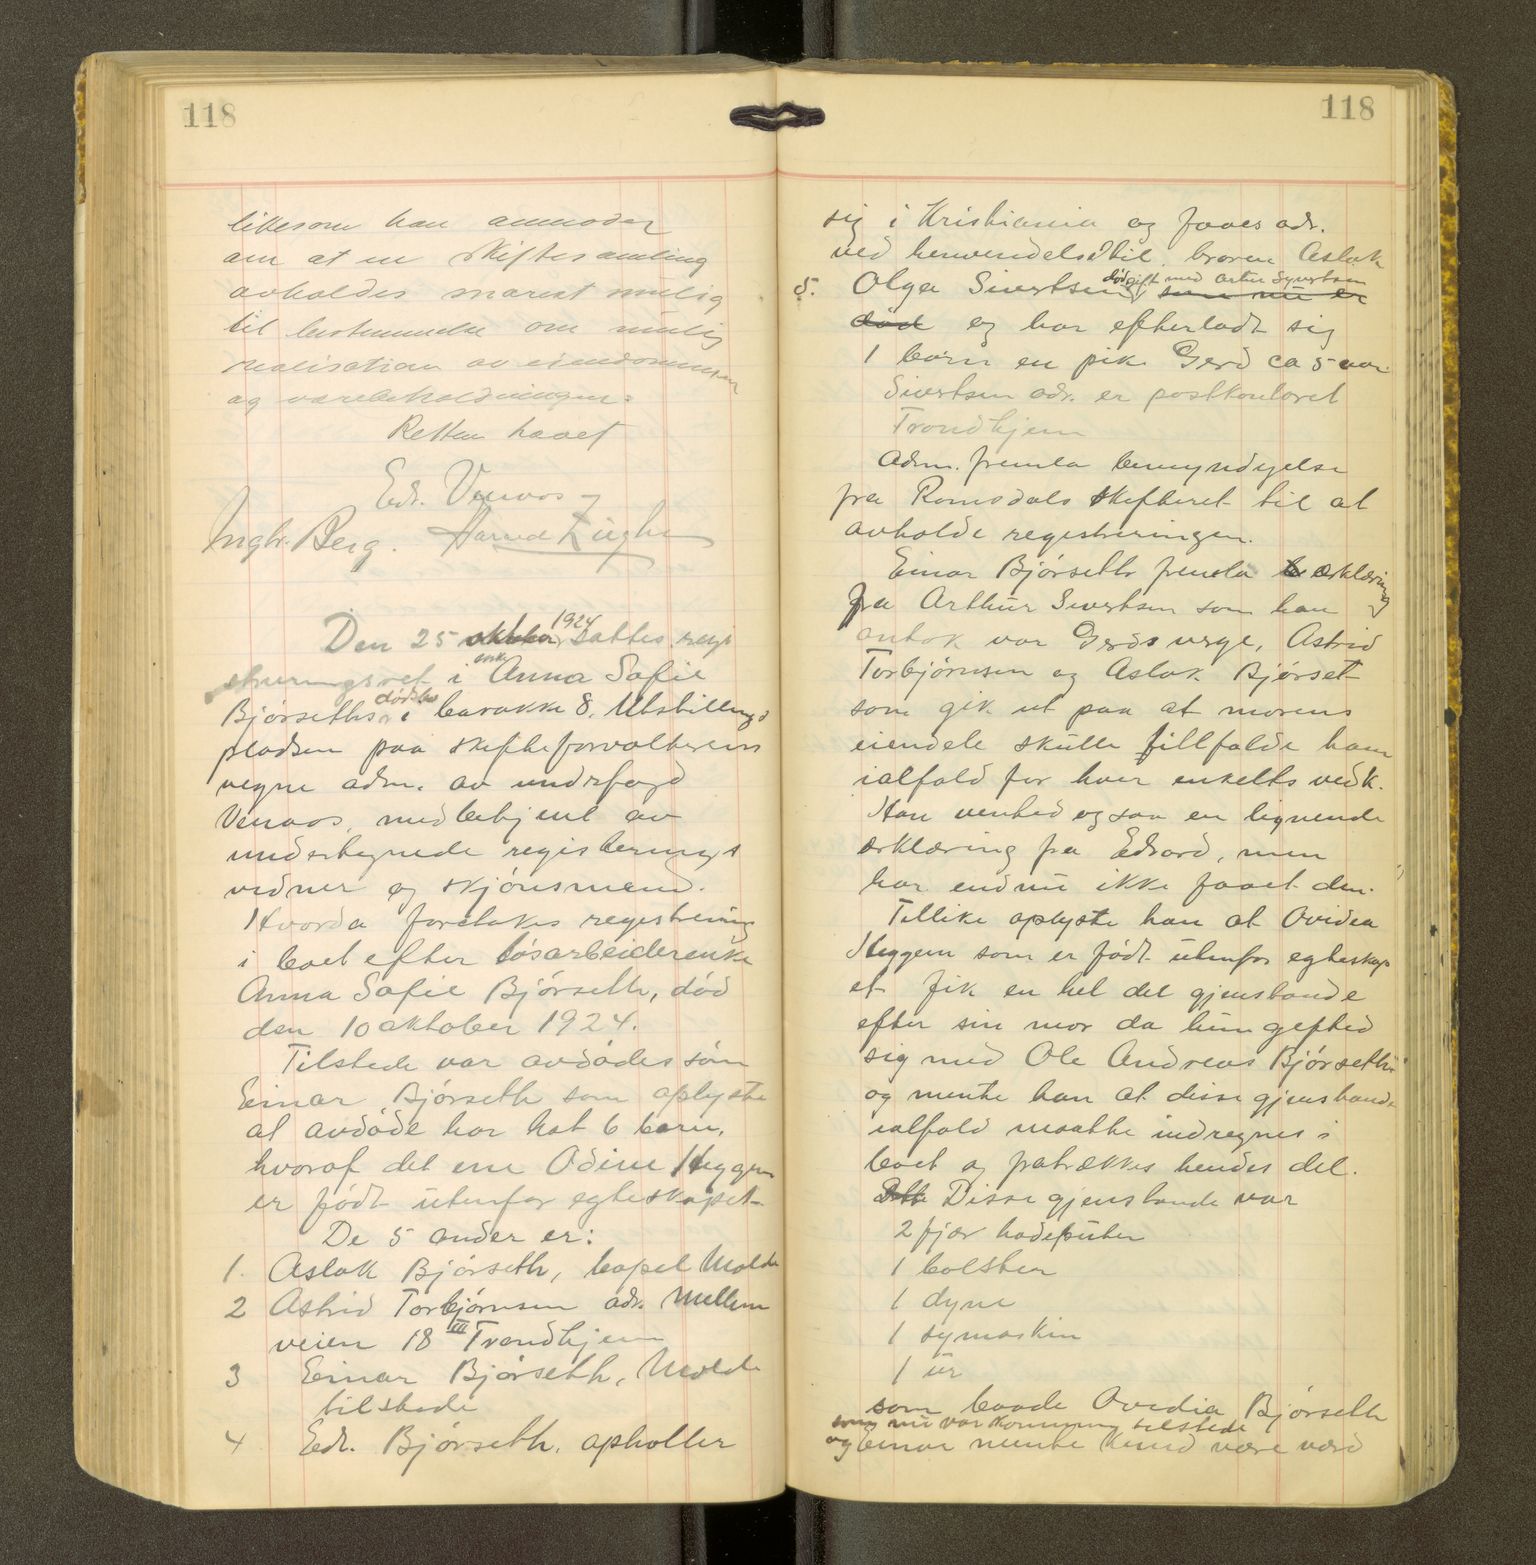 118
likesom han anmoder
om at en skiftesamling
avholdes snarest mulig
til bestemmelse om mulig
realisation av eiendommen
og varebeholdningen.
Retten hævet
Edr. Venaos
Ingbr. Berg.
Den 25 oktober 1924 sattes regi
streringsret i enke Anna Sofie
Bjørseths dødsbo i barakke 8, Utstillings
pladsen paa skifteforvalterens
vegne adm. av underfogd
Venaos, med betjent av
undertegnede registerings
vidner og skjønsmend.
Hvorda foretokes registrering
i boet efter løsarbeiderenke
Anna Sofie Bjørseth, død
den 10 oktober 1924.
Tilstede var avdødes søn
Einar Bjørseth som oplyste
at avdøde har hat 6 barn,
hvoraf det ene Odine Heggem
er født utenfor egteskapet.
De 5 ander er:
1. Aslak Bjørseth, bopel Molde
2 Astrid Torbjørnsen adr. Mellem
veien 18 III Trondhjem
3 Einar Bjørseth, Molde
tilstede
4 Edr. Bjørseth, opholler
118
sig i Kristiania og faaes adr.
ved henvendelse til broren Aslak
5. Olga Sivertsen død gift med Artur Syvertsen som nu er
død og har efterladt sig
1 barn en pike Gerd ca 5 aar.
Sivertsen adr. er postkontoret
Trondhjem
Adm. fremla bemyndigelse
fra Romsdals skifteret til at
avholde registreringen.
Einar Bjørseth fremla erklæring
fra Arthur Sivertsen som han
antok var Gerds verge, Astrid
Torbjørnsen og Aslak Bjørset
som gik ut paa at morens
eiendele skulle tillfalde ham
ialfald for hver enkelts vedk.
Han vented ogsaa en lignende
erklæring fra Edvard, men
har endnu ikke faaet den.
Tillike oplyste han at Ovidea
Heggem som er født utenfor egteskap
et fik en hel del gjenstande
efter sin mor da hun gifted
sig med Ole Andreas Bjørseth
og mente han at disse gjenstande
ialfald maatte indregnes i
boet og fratrækkes hendes del.
Disse gjenstande var
2 fjær hodeputer
1 bolster
1 dyne
1 symaskin
1 ur
som baade Ovedia Bjørseth
som nu var kommen tilstede
og Einar mente kunde være værd